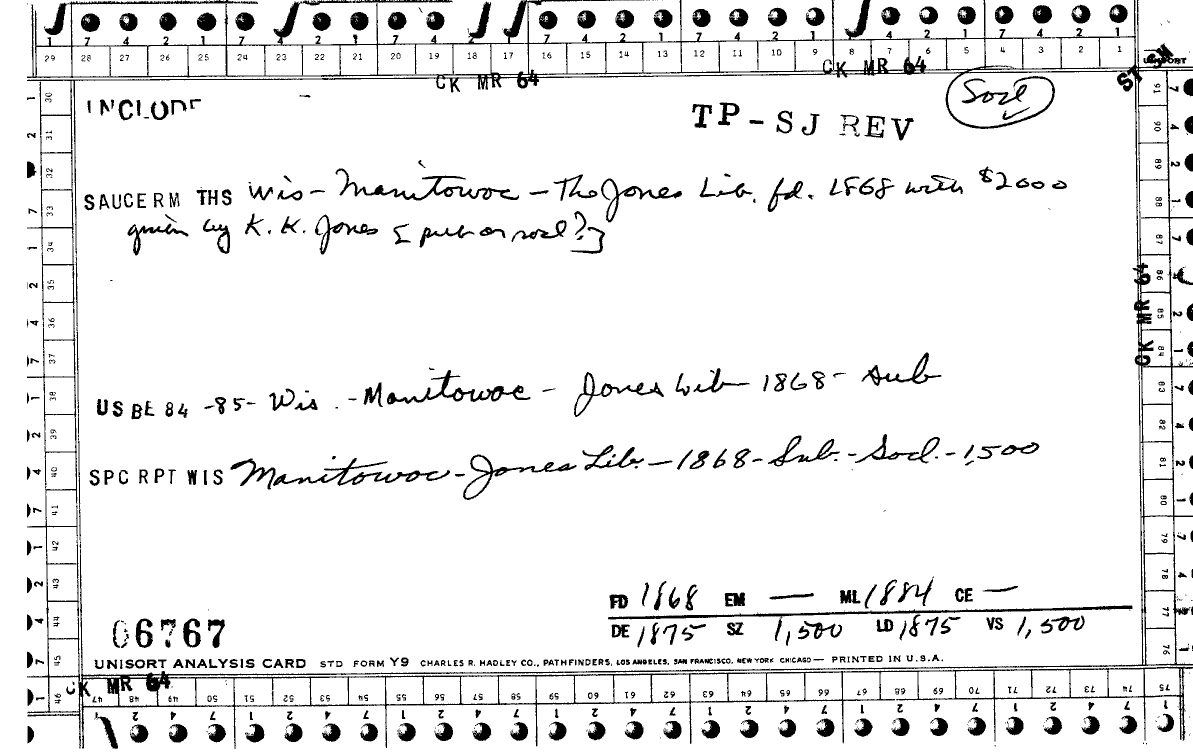 1 7 4 2 1 7 4 2 1 7 4 2 1 7 4 2 1 7 4 2 1 7 4 2 1 7 4 2 1
29 28 27 26 25 24 23 22 21 20 19 18 17 16 15 14 13 12 11 10 9 8 7 6 5 4 3 2 1 UNISORT
CK MR 64 CK MR 64 ST SM
INCLUDE TP-SJ REV Socl
SAUCERM THS Wis - Manitowoc - The Jones Lib. fd. 1868 with $2000
given by K. K. Jones [pub or socl?]
CK MR 64
US BE 84 -85- Wis. - Manitowoc - Jones Lib - 1868 - Sub
SPC RPT WIS Manitowoc - Jones Lib. - 1868 - Sub. - Socl. - 1,500
FD 1868 EM — ML 1884 CE —
DE 1875 SZ 1,500 LD 1875 VS 1,500
06767
UNISORT ANALYSIS CARD STD FORM Y9 CHARLES R. HADLEY CO., PATHFINDERS, LOS ANGELES, SAN FRANCISCO, NEW YORK CHICAGO — PRINTED IN U.S.A.
CK MR 64
46 47 48 49 50 51 52 53 54 55 56 57 58 59 60 61 62 63 64 65 66 67 68 69 70 71 72 73 74 75